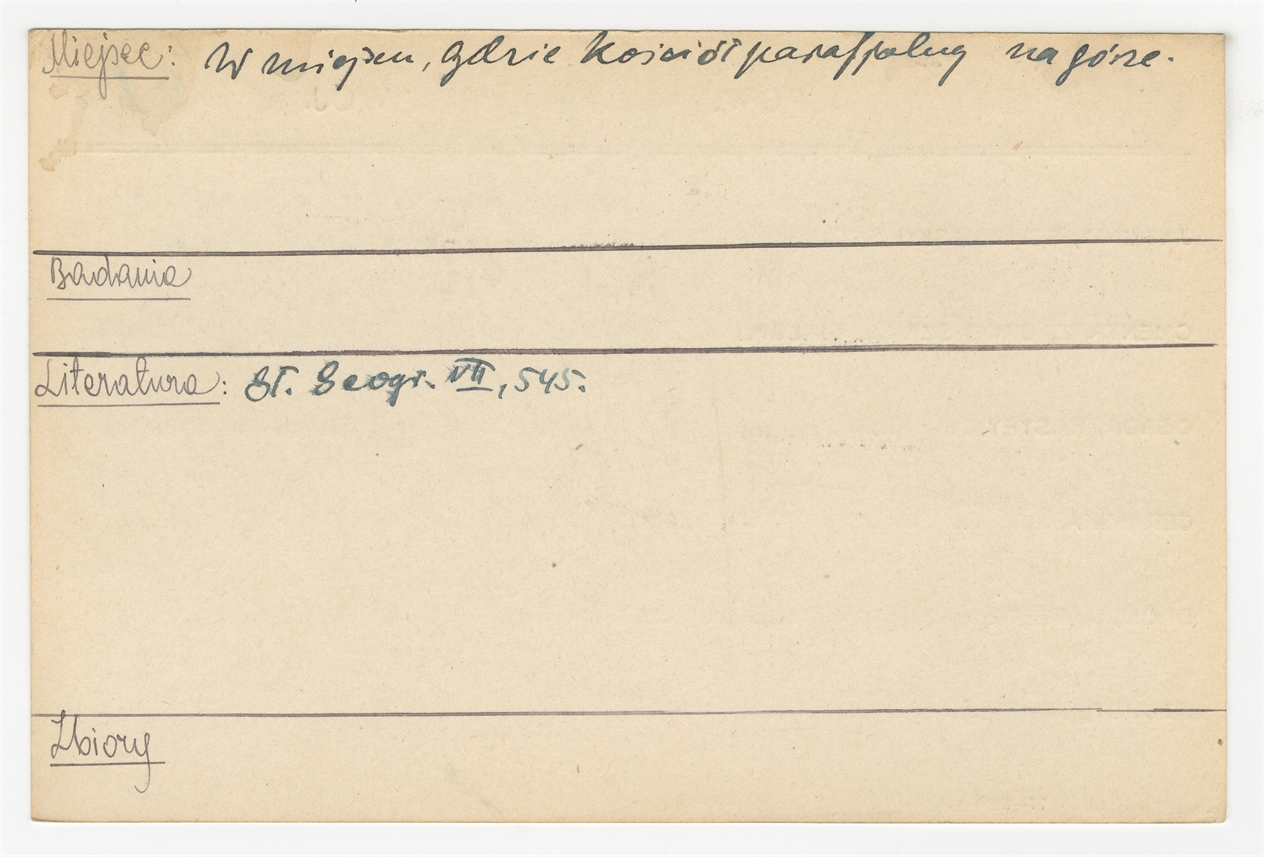 Miejsce: W miejscu, gdzie kościół parafjalny na górze.
Badania
Literatura: Sł. Geogr. VII, 545.
Zbiory